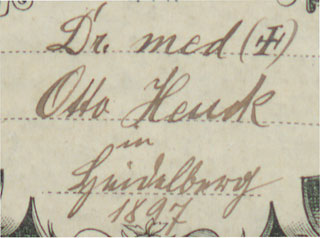 Dr. med (I)
Otto Henck
in
Heidelberg
1897